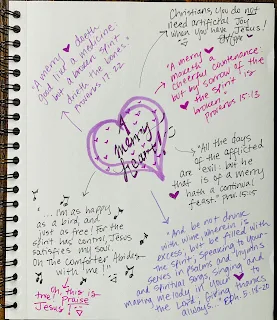 "A merry ♥ doeth
good like a medicine:
but a broken spirit
drieth the bones."
Proverbs 17:22
Christians, you do not
need artificial Joy
when you have Jesus!
"A merry ♥
maketh a
cheerful countenance:
but by sorrow of the
♥ the spirit is
broken."
Proverbs 15:13
A
merry
heart
"All the days
of the afflicted
are evil: but he
that is of a merry
♥ hath a continual
feast." Prov. 15:15
"... I'm as happy
as a bird, and
just as free! For the
Spirit has control, Jesus
satisfies my soul.
Oh the Comforter Abides
with me!!"
Oh, this is
true! Praise
Jesus!
"And be not drunk
with wine, wherein is
excess; but be filled with
the Spirit; Speaking to your-
selves in psalms and hymns
and spiritual songs, singing and
making melody in your ♥ to
the Lord; Giving thanks
always" Eph. 5:18-20